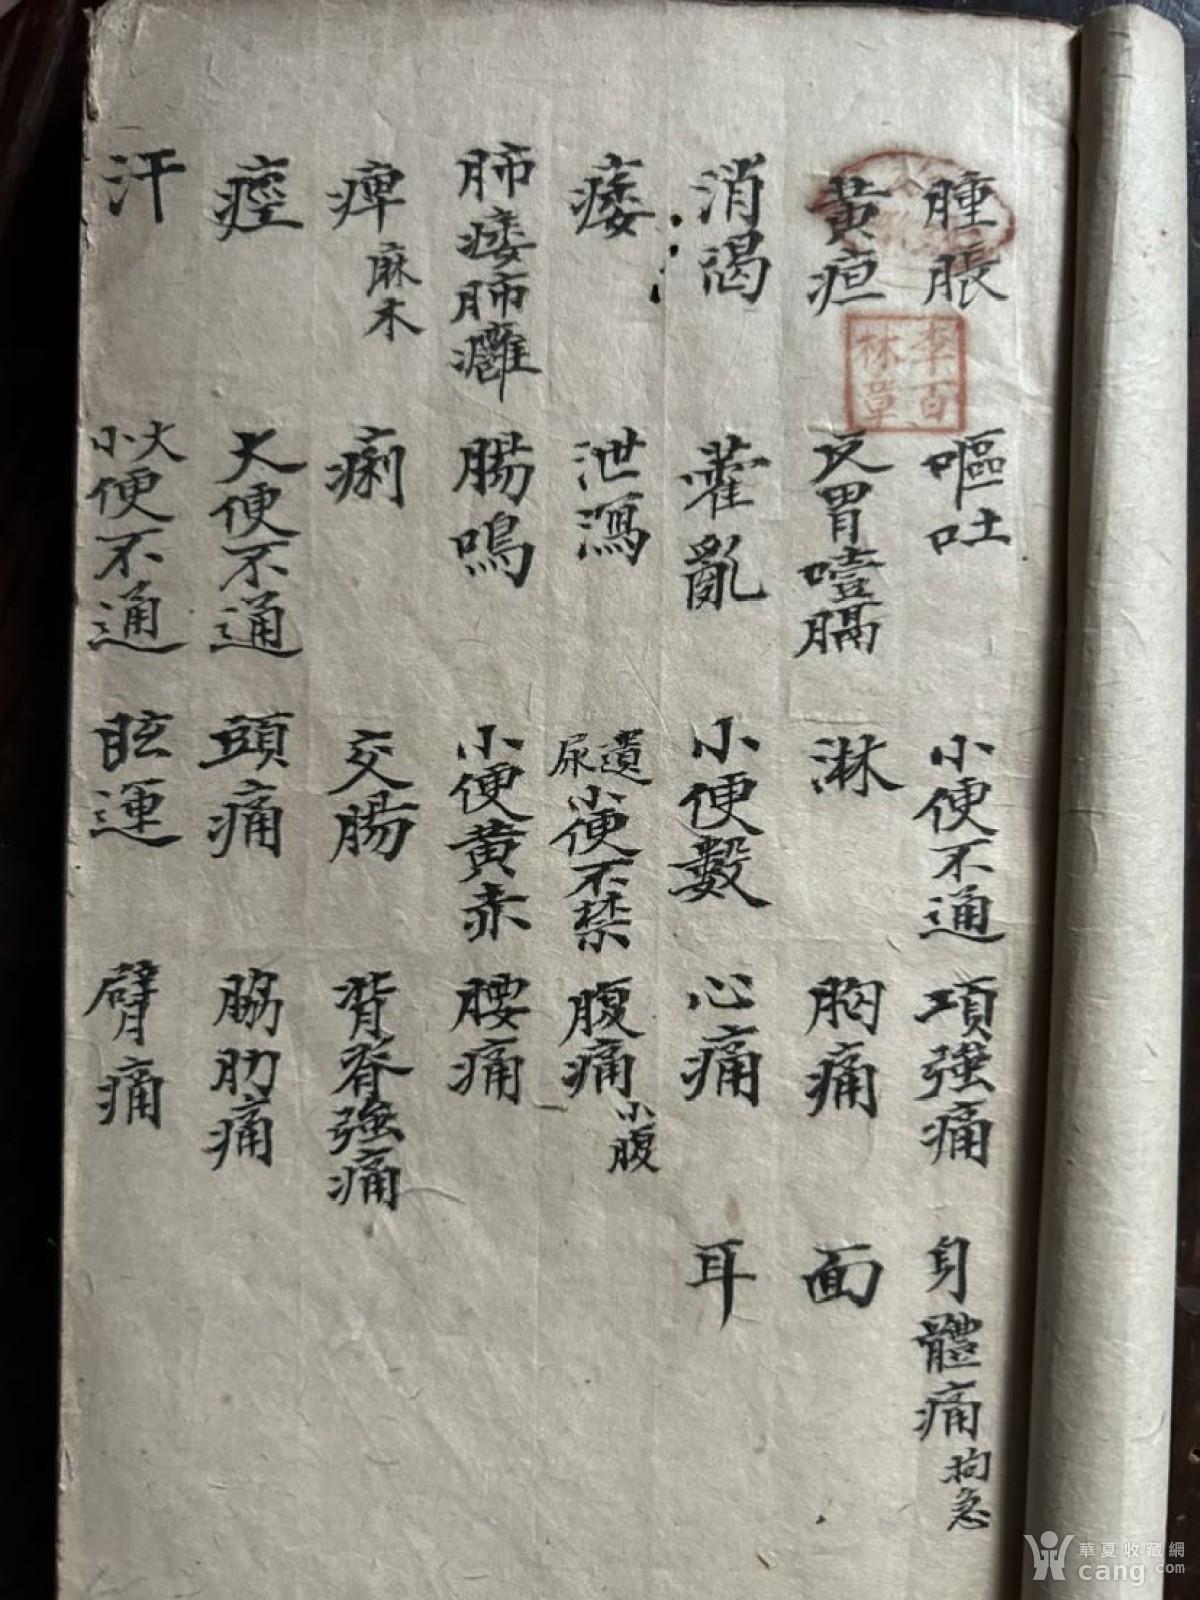 腫脹 嘔吐 小便不通 項強痛 身體痛 拘急
黃疸 反胃噎膈 淋 胸痛 面
消渴 藿亂 小便數 心痛 耳
痿 泄瀉 遺尿 小便不禁 腹痛 小腹
肺痿肺癰 腸鳴 小便黃赤 腰痛
痺 麻木 痢 交腸 背脊強痛
痙 大便不通 頭痛 脇肋痛
汗 大小便不通 眩運 臂痛
李百
林章
華夏收藏網
cang.com